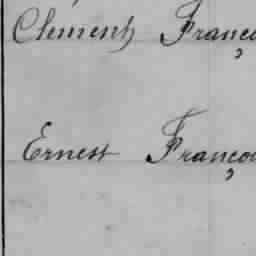 Clément Franço
Ernest Françoi